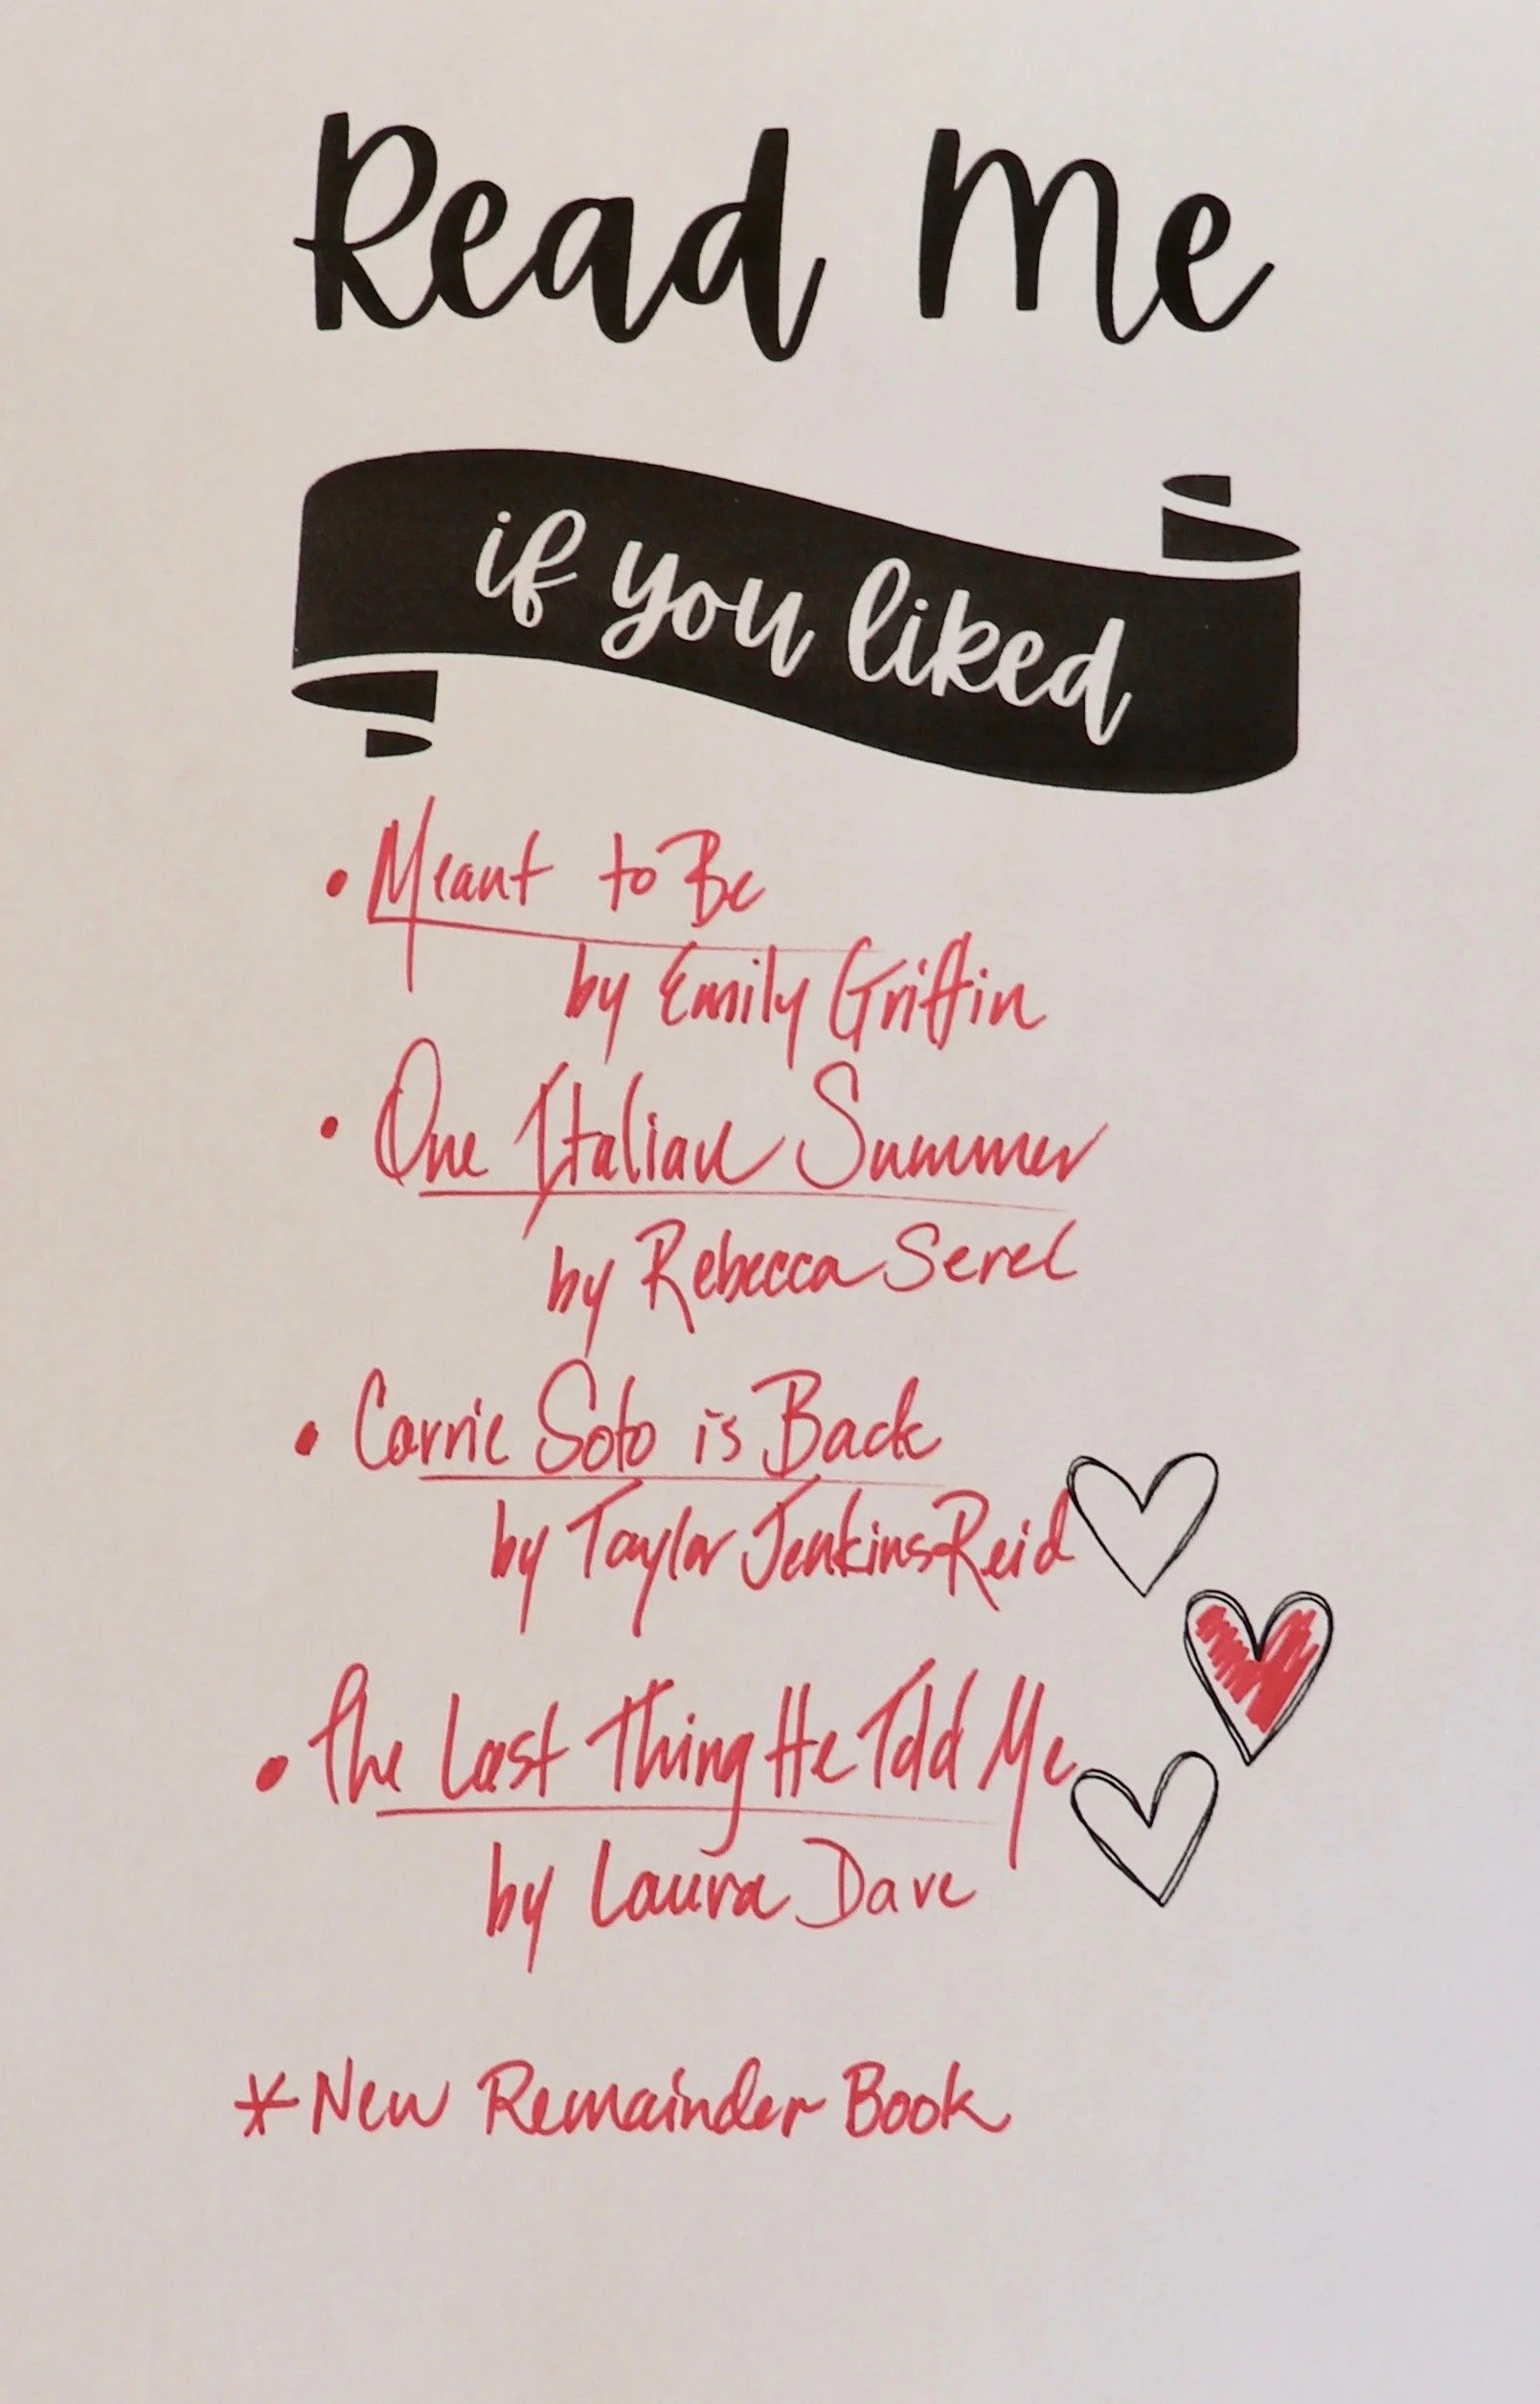 Read Me
if you liked
• Meant to Be
by Emily Griffin
• One Italian Summer
by Rebecca Serel
• Carrie Soto is Back
by Taylor Jenkins Reid
• The Last Thing He Told Me
by Laura Dave
* New Remainder Book